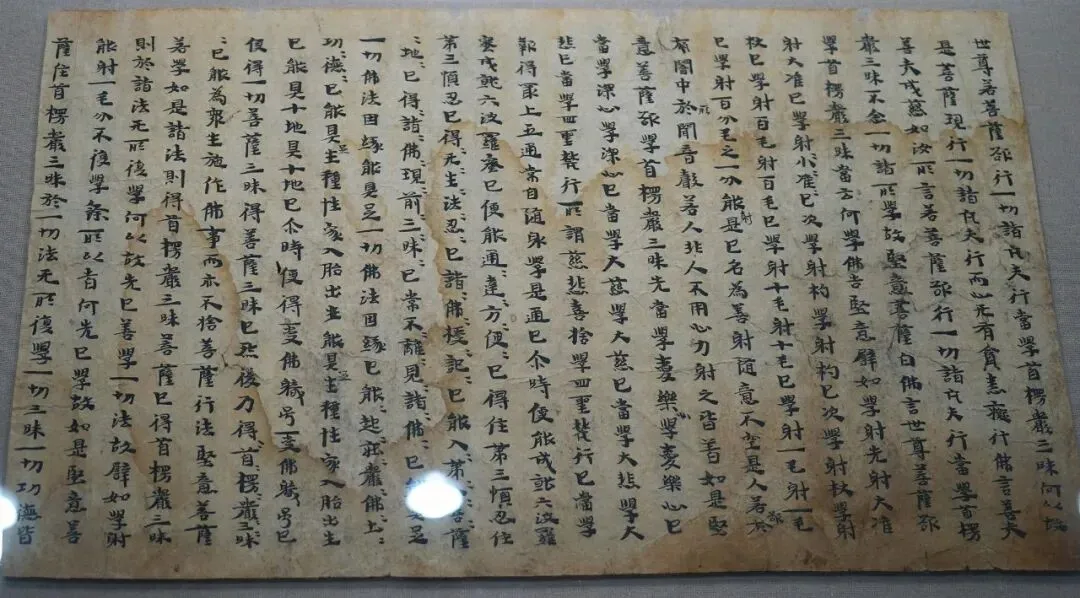 世尊若菩薩欲行一切諸凡夫行當學首楞嚴三昧何以故
是菩薩現行一切諸凡夫行而心无有貪恚癡行佛言善夫
善夫成慈如汝所言若菩薩欲行一切諸凡夫行當學首楞
嚴三昧不念一切諸所學故堅意菩薩白佛言世尊菩薩欲
學首楞嚴三昧當云何學佛告堅意譬如學射先射大准
射大准已學射小准〻已次學射杓學射杓已次學射杖學射
杖已學射百毛射百毛已學射十毛射十毛已學射一毛射一毛
已學射百分毛之一分能射是已名為善射隨意不空是人若欲於
夜闇中所聞音聲若人非人不用心力射之皆著如是堅
意菩薩欲學首楞嚴三昧先當學愛樂心學愛樂心已
當學深心學深心已當學大慈學大慈已當學大悲學大
悲已當學四聖梵行所謂慈悲喜捨學四聖梵行已當學
報得最上五通常自隨身學是通已尒時便能成就六波羅
蜜成就六波羅蜜已便能通〻達〻方〻便〻已得住第三順忍住
第三順忍已得无〻生〻法〻忍〻已諸〻佛〻授〻記〻已能入第〻八〻菩〻薩
〻地〻已得諸〻佛〻現〻前〻三〻昧〻已常不〻離〻見〻諸〻佛〻已能具足
一切佛法因緣能具足一切佛法因緣已能起莊〻嚴〻佛〻土〻
功〻德〻已能具生種性家入胎出生能具生種性家入胎出生
已能具十地具十地已尒時便得受佛軄号受佛軄号已
便得一切菩薩三昧得菩薩三昧已然後乃得首〻楞〻嚴〻三〻昧
〻已能為衆生施作佛事而亦不捨菩薩行法堅意菩薩
若學如是諸法則得首楞嚴三昧菩薩已得首楞嚴三昧
則於諸法无所復學何以故先已善學一切法故譬如學射
能射一毛分不復學餘所以者何先已學故如是堅意菩
薩住首楞嚴三昧於一切法无所復學一切三昧一切功德皆